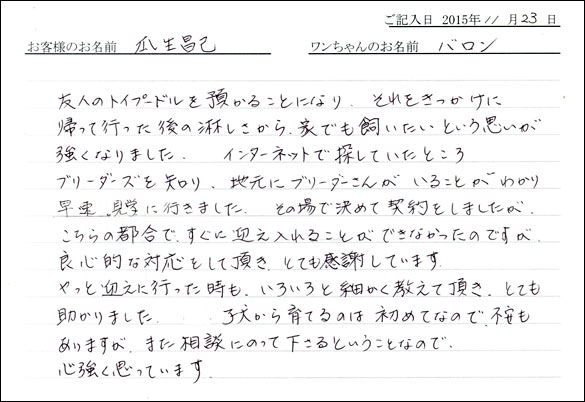 ご記入日 2015年 11 月 23 日
お客様のお名前 瓜生昌己 ワンちゃんのお名前 バロン
友人のトイプードルを預かることになり、それをきっかけに
帰って行った後の淋しさから、家でも飼いたいという思いが
強くなりました。 インターネットで探していたところ
ブリーダーズを知り、地元にブリーダーさんがいることがわかり
早速、見学に行きました。その場で決めて契約をしましたが、
こちらの都合で、すぐに迎え入れることができなかったのですが、
良心的な対応をして頂き、とても感謝しています。
やっと迎えに行った時も、いろいろと細かく教えて頂き、とても
助かりました。 子犬から育てるのは初めてなので、不安も
ありますが、また相談にのって下さるということなので、
心強く思っています。